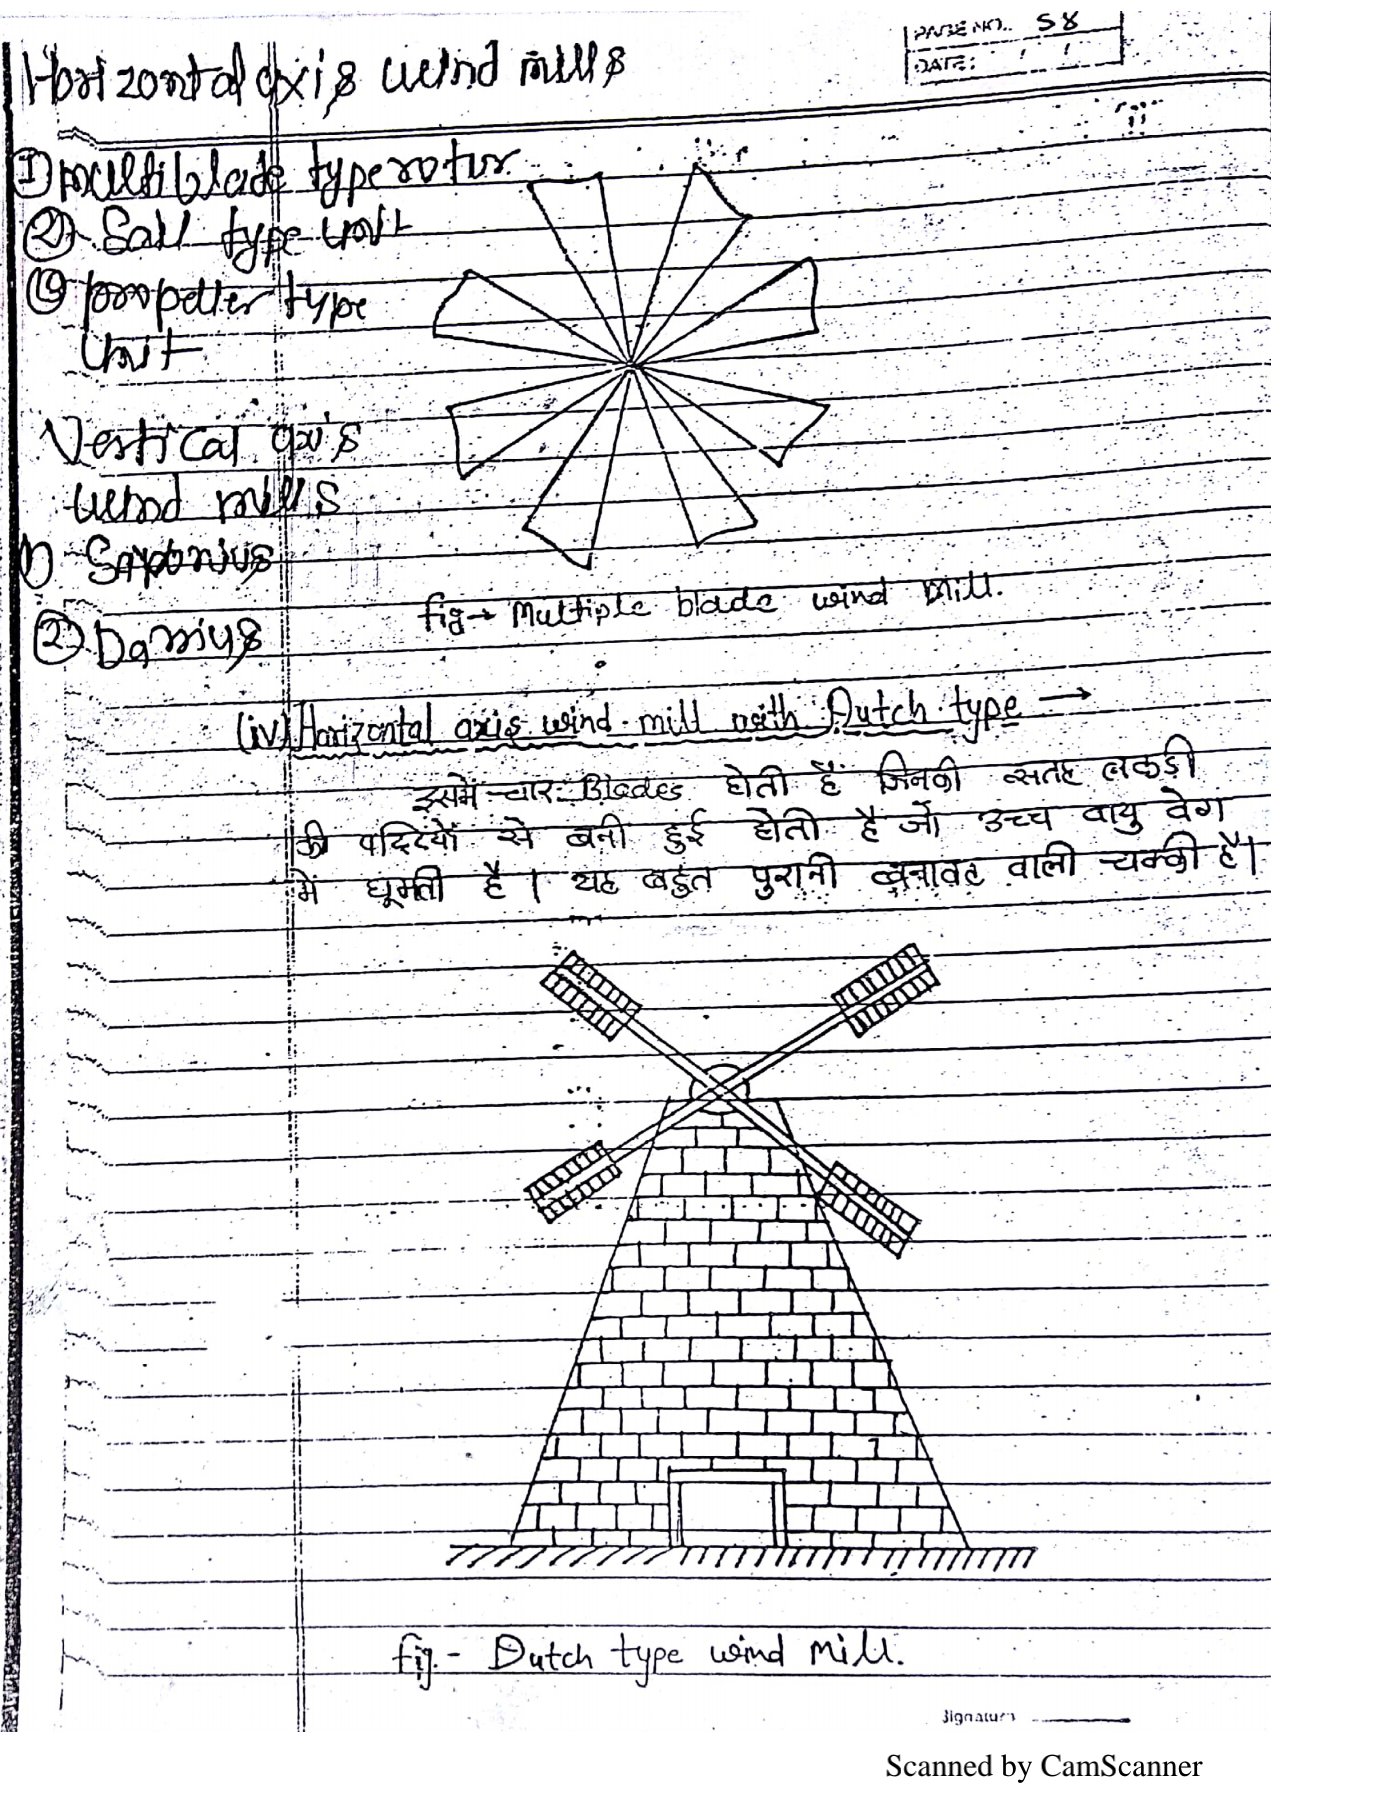 PAGE NO. 58
DATE: / /
Horizontal axis wind mills
① multiblade type rotur
② Sail type unit
③ propeller type
unit
Vertical axis
wind mills
1) Savonius
② Darrius
fig → Multiple blade wind mill.
(iv) Horizontal axis wind mill with Dutch type →
इसमें चार Blades होती हैं जिनकी सतह लकड़ी
की पट्टियों से बनी हुई होती है जो उच्च वायु वेग
में घूमती है। यह बहुत पुरानी बनावट वाली चक्की है।
fig.- Dutch type wind mill.
Signature
Scanned by CamScanner